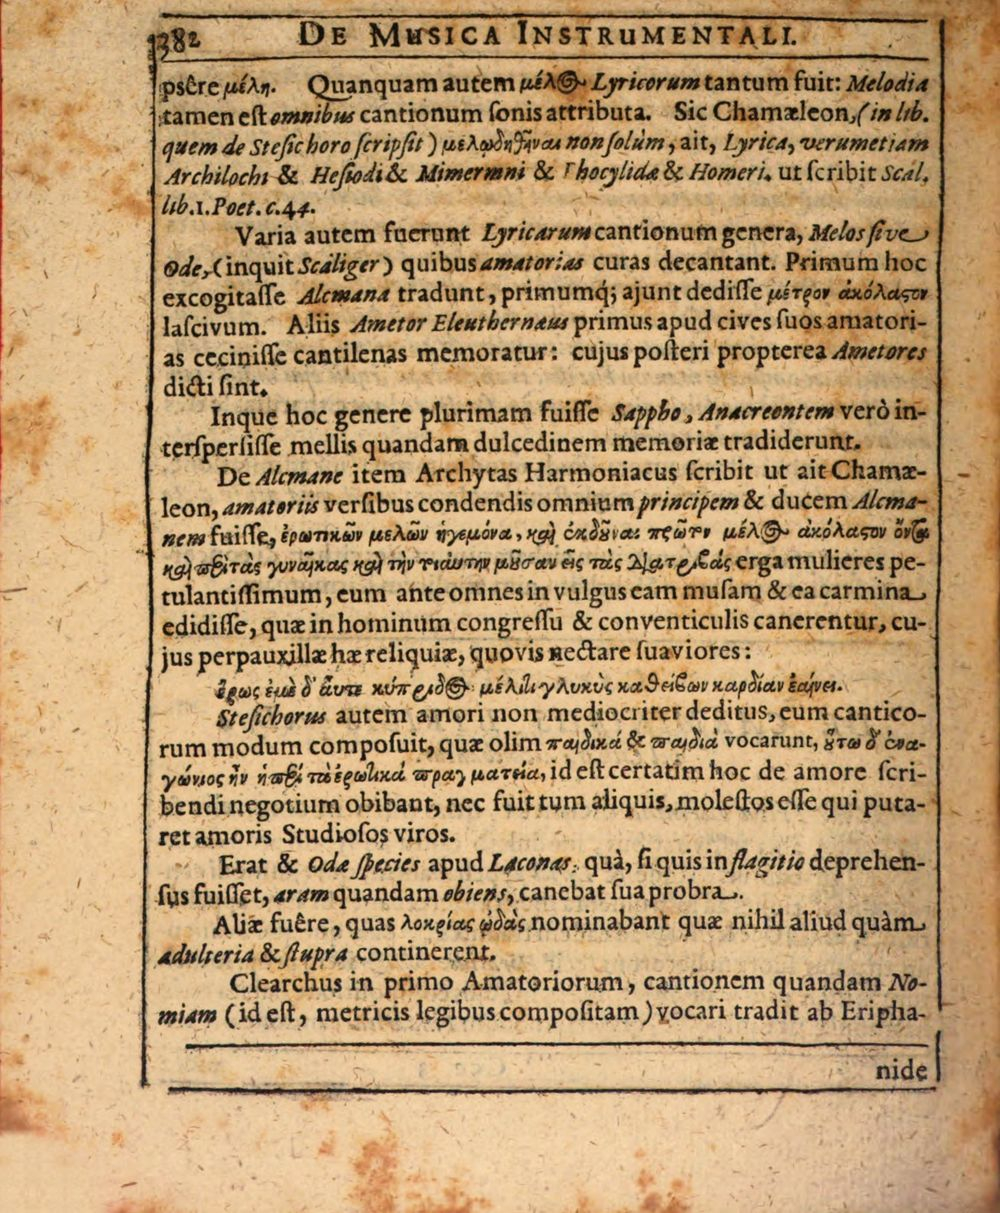 382 DE MUSICA INSTRUMENTALI.
psêre μέλη. Quanquam autem μέλος Lyricorum tantum fuit: Melodia
tamen est omnibus cantionum sonis attributa. Sic Chamæleon, (in lib.
quem de Stesichoro scripsit) μελῳδηθῆναι non solùm, ait, Lyrica, verum etiam
Archilochi & Hesiodi & Mimermni & Phocylidæ & Homeri, ut scribit Scal.
lib.1. Poet. c.44.
Varia autem fuerunt Lyricarum cantionum genera, Melos sive
Ode, (inquit Scaliger) quibus amatorias curas decantant. Primum hoc
excogitasse Alcmana tradunt, primumq́; ajunt dedisse μέτρον ἀκόλαστον
lascivum. Aliis Ametor Eleuthernæus primus apud cives suos amatori-
as cecinisse cantilenas memoratur: cujus posteri propterea Ametores
dicti sint.
Inque hoc genere plurimam fuisse Sappho, Anacreontem verò in-
terspersisse mellis quandam dulcedinem memoriæ tradiderunt.
De Alcmane item Archytas Harmoniacus scribit ut ait Chamæ-
leon, amatoriis versibus condendis omnium principem & ducem Alcma-
nem fuisse, ἐρωτικῶν μελῶν ἡγεμόνα, καὶ ἐκδοῦναι πρῶτον μέλος ἀκόλαστον ὄντα
καὶ περὶ τὰς γυναῖκας καὶ τὴν τοιαύτην μοῦσαν εἰς τὰς διατριβάς erga mulieres pe-
tulantissimum, eum ante omnes in vulgus eam musam & ea carmina
edidisse, quæ in hominum congressu & conventiculis canerentur, cu-
jus perpauxillæ hæ reliquiæ, quovis nectare suaviores:
ἔρως ἐμὲ δ' αὖτε κύπριδος μέλιτι γλυκὺς κατείβων καρδίαν ἰαίνει.
Stesichorus autem amori non mediocriter deditus, eum cantico-
rum modum composuit, quæ olim παιδικά & παιδιά vocarunt, οὕτω δ' ἐνα-
γώνιος ἦν ἡ περὶ τὰ ἐρωτικά πραγματεία, id est certatim hoc de amore scri-
bendi negotium obibant, nec fuit tum aliquis, molestos esse qui puta-
ret amoris Studiosos viros.
Erat & Odæ species apud Laconas, quà, si quis in flagitio deprehen-
sus fuisset, aram quandam obiens, canebat sua probra.
Aliæ fuêre, quas λοκρίας ᾠδὰς nominabant quæ nihil aliud quàm
adulteria & stupra continerent.
Clearchus in primo Amatoriorum, cantionem quandam No-
miam (id est, metricis legibus compositam) vocari tradit ab Eripha-
nide